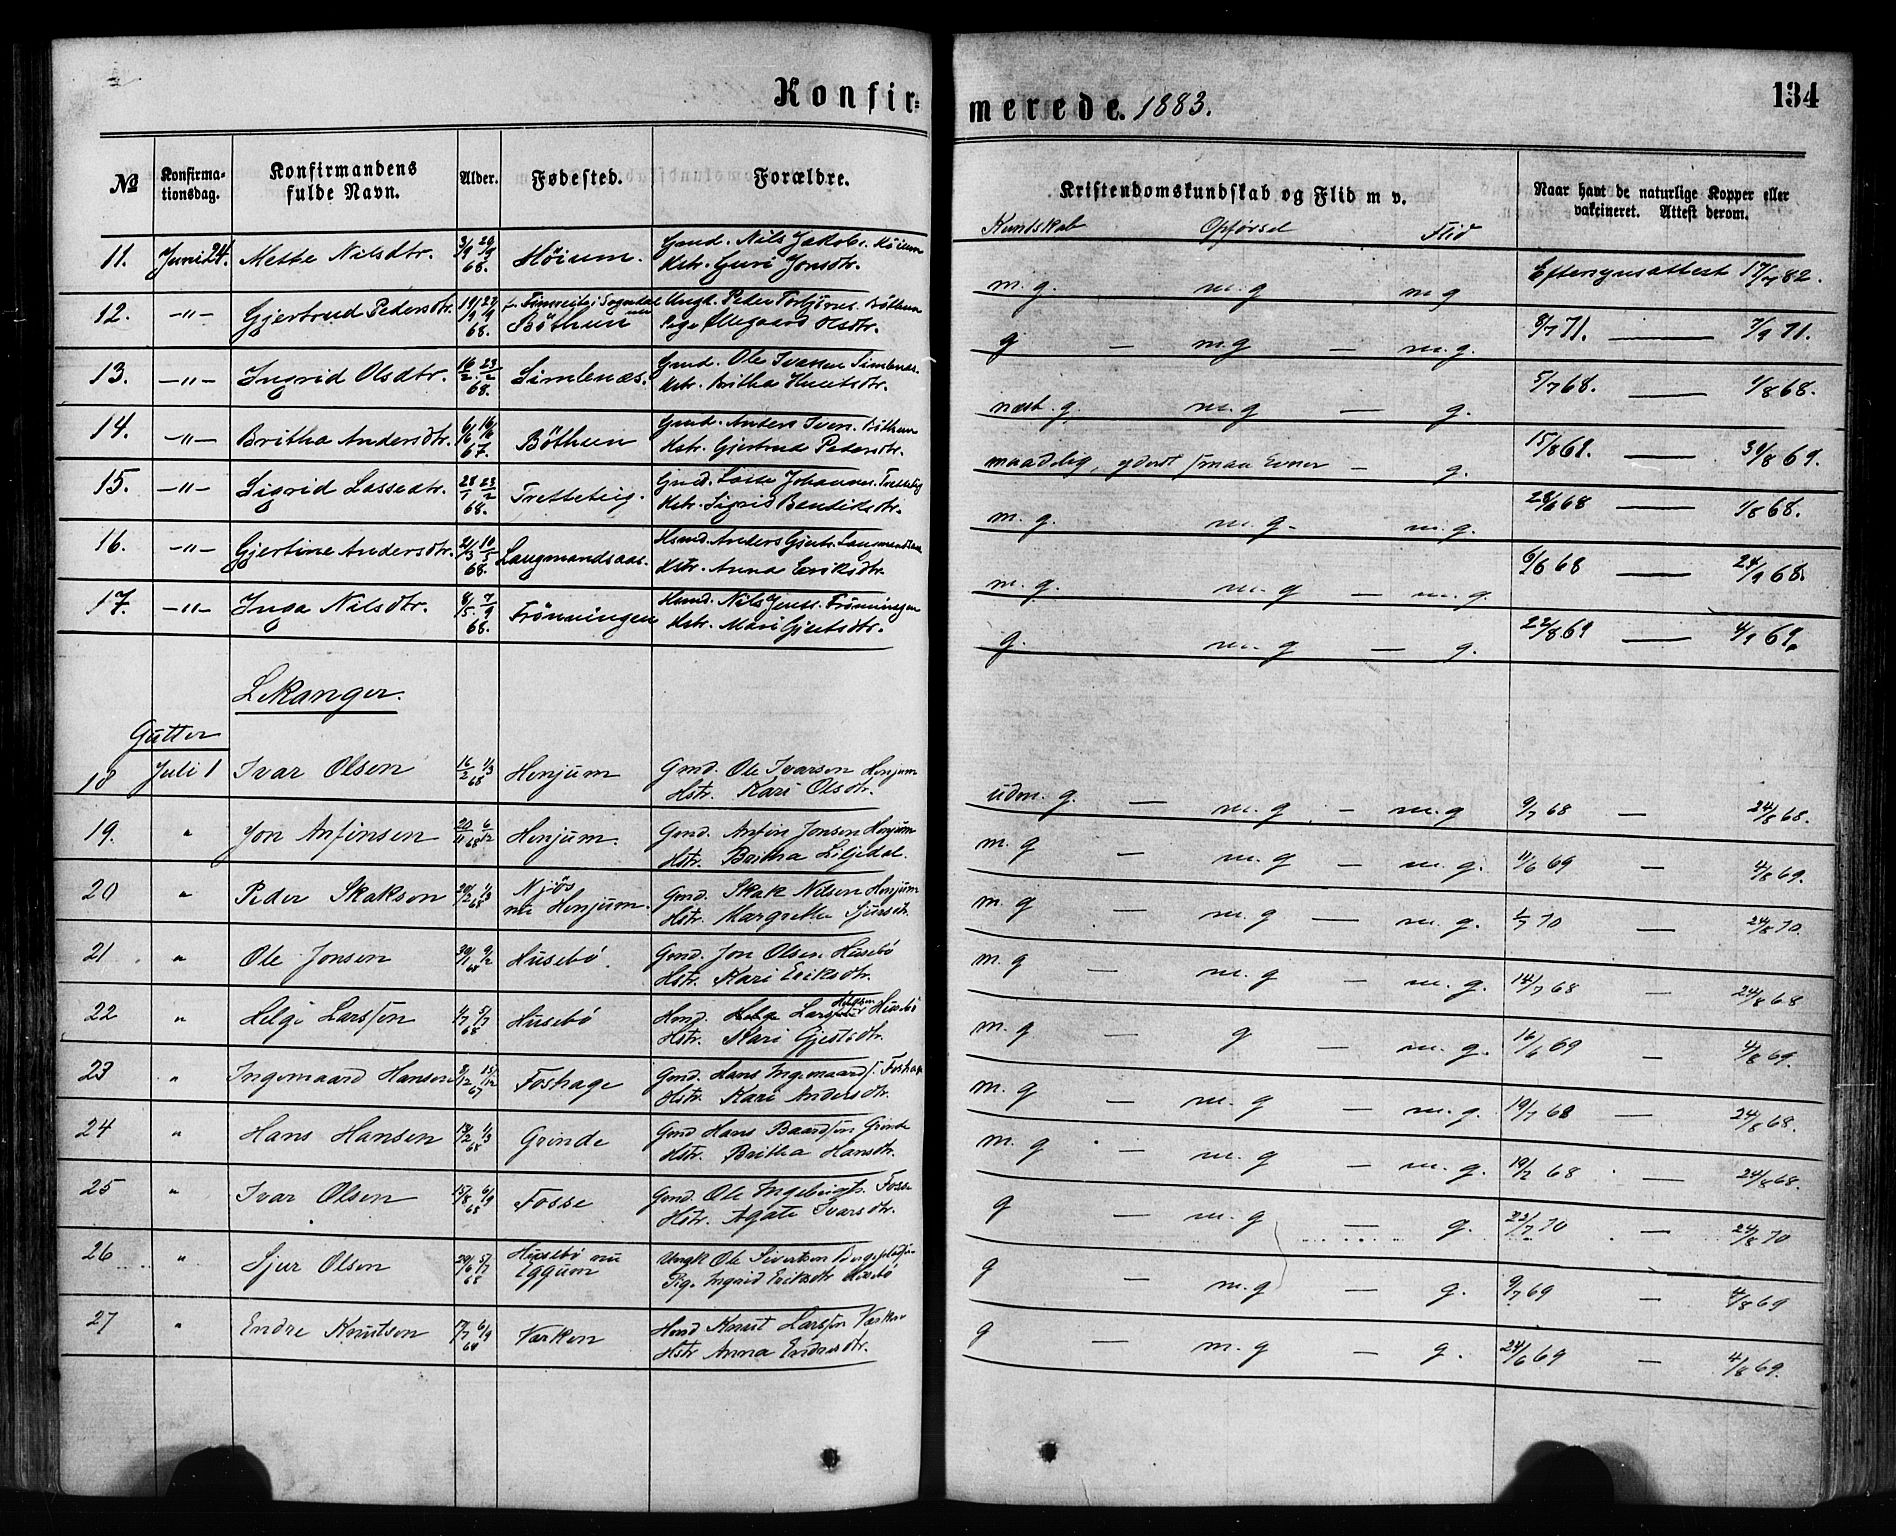 Konfir=
merede. 1883.
134
No
Konfirma-
tionsdag.
Konfirmandens
fulde Navn.
Alder.
Fødested.
Forældre.
Kristendomskundskab og Flid m v.
Kundskab Opførsel Flid
Naar havt de naturlige Kopper eller
vakcineret. Attest derom.
11. Juni 24. Mette Nilsdtr. 3/9 29/9 68. Höium. Gmd. Nils Jakobs. Höium
Kstr. Guri Jonsdtr.
m. g. m. g m g Eftersynsattest 17/4 82.
12. -"- Gjertrud Pedersdtr. 19/9 27/9 68. f. Fimreite i Sogndal
nu Böthun
Ungk. Peder Torbjörns. Böthun
Pige Allegaard Olsdtr.
g — m g — m. g. 8/7 71. — 7/9 71.
13. -"- Ingrid Olsdtr. 16/2 23/2 68. Simlenæs. Gmd. Ole Ivarsen Simlenæs.
Kstr. Britha Knutsdtr.
næst. g. m. g — g. 5/7 68. — 1/8 68.
14. -"- Britha Andersdtr. 6/10 16/10 67. Böthun Gmd. Anders Ivers. Böthun
Kstr. Gjertrud Pedersdtr.
maadelig, yderst smaa Evner — g. 15/8 68. — 30/8 69.
15. -"- Sigrid Lassedtr. 28/1 23/2 68. Tretteteig. Gmd. Lasse Johannes. Tretteteig
Kstr. Sigrid Bendiksdtr.
m. g. m. g. — m. g. 28/6 68 — 1/8 68.
16. -"- Gjertine Andersdtr. 21/3 10/5 68. Laugmandsaas. Hsmd. Anders Gjerts. Laumandsaas
Kstr. Anna Eriksdtr.
m. g. m. g — m. g. 6/6 68 — 24/9 68.
17. -"- Inga Nilsdtr. 8/5. 7/9 68. Frönningen Hsmd. Nils Jenss. Frönningen
Kstr. Mari Gjertsdtr.
g. m. g — g. 22/8 69 — 4/9 69.
Lekanger.
Gutter
18 Juli 1 Ivar Olsen 16/2 1/3 68 Henjum Gmd. Ole Ivarsen Henjum
Hstr. Kari Olsdtr.
udm. g. — m. g. — m. g 9/7 68 — 24/8 68.
19. " Jon Anfinsen 20/11 68 6/12 Henjum. Gmd. Anfin Jonsen Henjum
Hstr. Britha Liljedal.
m. g — m. g — m. g. 11/6 69 — 4/8 69.
20 " Peder Skaksen 20/2 68 1/3 Njös
nu Henjum. Gmd. Skak Nilsen Henjum
Hstr. Margrethe Sjursdtr.
m. g — m. g — m. g. 1/7 70 — 24/8 70.
21 " Ole Jonsen 30/1 68 9/2 Husebö. Gmd. Jon Olsen Husebö
Hstr. Kari Eriksdtr.
m. g — m. g — m. g. 14/7 68 — 24/8 68
22 " Helge Larssen 1/7 5/7 68 Husebö Hsmd. Helge Larssen Husebö
Hstr. Kari Gjertsdtr.
m. g — g — m. g. 16/6 69 — 4/8 69.
23 " Ingemaard Hansen 9/12 67 15/12 Foshage Gmd. Hans Ingemaards. Foshage
Hstr. Kari Andersdtr.
m. g — m. g — m. g. 19/7 68 — 24/8 68.
24 " Hans Hansen 18/2 68 1/3 Grinde Gmd Hans Baardsen Grinde
Hstr. Britha Hansdtr.
m. g — m. g — m. g. 19/7 68 — 24/8 68.
25 " Ivar Olsen 15/8 68 6/9 Fosse Gmd. Ole Ingebrigts. Fosse
Hstr. Agate Ivarsdtr.
g — m. g — g. 22/7 70 — 24/8 70
26 " Sjur Olsen 29/6 5/7 68 Husebö nu
Eggum Ungk Ole Sivertsen
Pige Ingrid Eriksdtr Husebö
g — m. g — g. 9/7 69 — 4/8 69
27 " Endre Knutsen 17/7 6/9 68 Værken Hsmd Knut Larssen Værken
Hstr Anna Endresdtr.
g — m. g — g. 24/6 69 — 4/8 69.